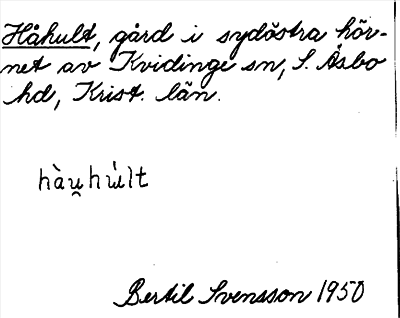 Håhult, gård i sydöstra hör-
net av Kvidinge sn, S. Åsbo
hd, Krist. län.
hàu̯hu̇̀lt
Bertil Svensson 1950